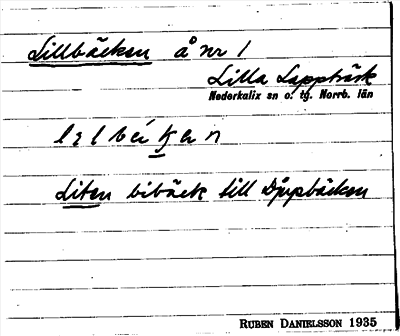 Lillbäcken å nr 1
Lilla Lappträsk
Nederkalix sn o. tg. Norrb. län
Liten bibäck till Djupbäcken
RUBEN DANIELSSON 1935